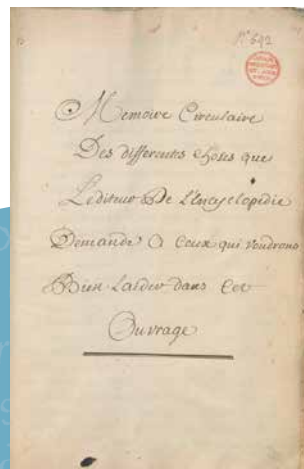 N° 692
Memoire Circulaire
Des differentes choses que
L'editeur De L'encyclopédie
Demande a Ceux qui voudrons
Bien Laider dans Cet
Ouvrage